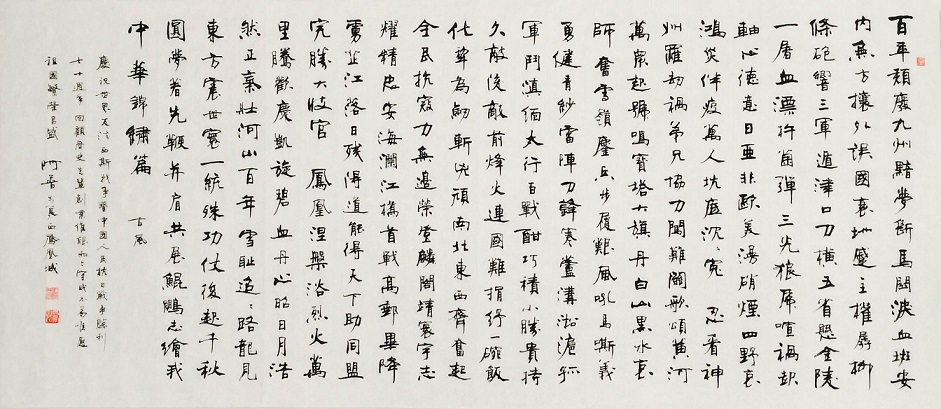 百年頹廢九州黯夢斷馬關淚血斑安
内無方攘外誤國哀地蹙主權辱柳
條砲響三軍遁津口刀橫五省懸金陵
一屠血漂杵菌彈三光狼犀喧禍起
軸心德意日亞非歐美湯硝煙四野哀
鴻災伴疫萬人坑沉沉寃忍看神
州羅劫禍弟兄協力鬩難歌頌黄河
萬衆起號鳴寶塔大旗丹白山黑水哀
師奮雪嶺鏖兵步履艱風吼馬嘶義
勇健青紗雷陣刀鋒寒蘆溝淞滬孤
軍鬥滇緬太行百戰酣巧積小勝貴持
久敵後敵前烽火連國難捐紓一碗飯
化犂為劒斬兇頑南北東西齊奮起
全民抗寇力無邊榮登麟閣靖寰宇志
耀精忠安海瀾江橋首戰高郵畢降
虜芷江落日殘得道能得天下助同盟
完勝大收官鳳凰涅槃浴烈火萬
里騰歡慶凱旋碧血丹心昭日月浩
然正氣壯河山百年雪恥追々路龍見
東方震世寰一統殊功仗後起千秋
圓夢着先鞭并肩共展鯤鵬志繪我
中華錦繡篇 古風
慶祝世界反法西斯戰爭暨中國人民抗日戰爭勝利
七十週年回顧歷史
祖國繁榮昌盛